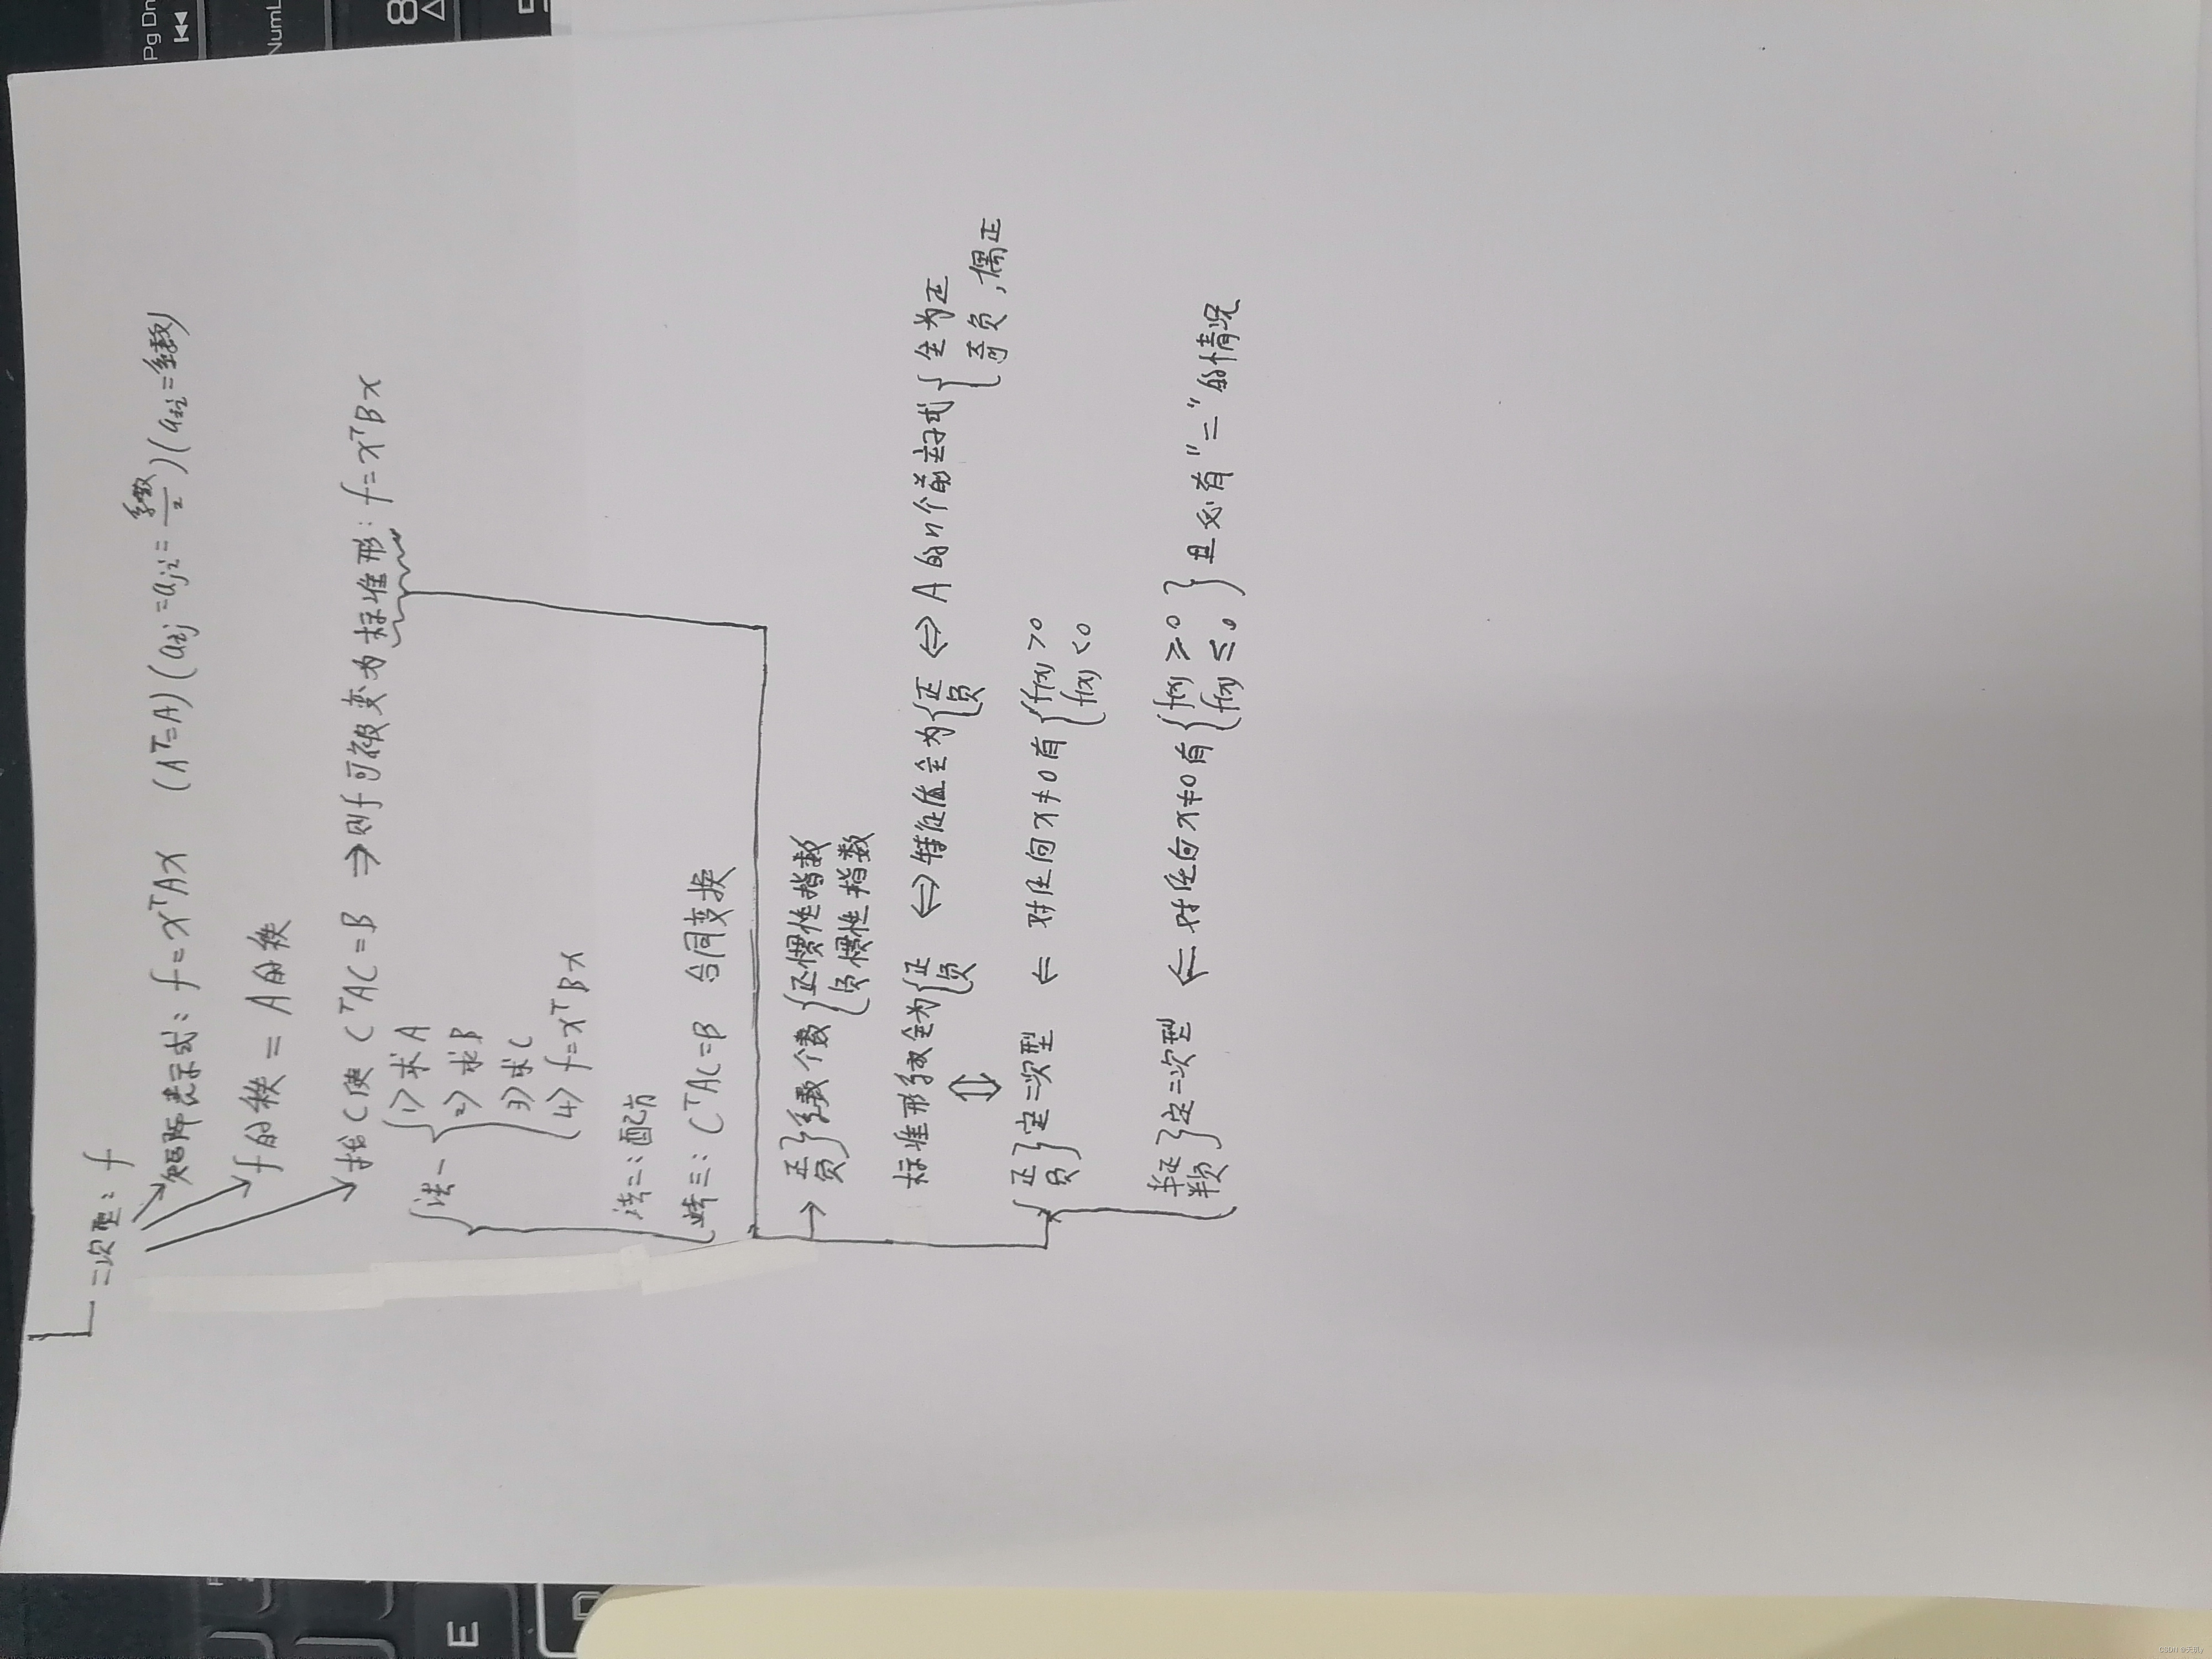 二次型：f
矩阵表示式：f=xᵀAx （Aᵀ=A）（aij=aji=系数/2）（aii=系数）
f的秩 = A的秩
找C使 CᵀAC=B ⇒则f可被变为标准形：f=xᵀBx
法一 1）求A
2）求B
3）求C
4）f=xᵀBx
法二：配方
法三：CᵀAC=B 合同变换
→ 正 负 } 系数个数 { 正惯性指数
负惯性指数
标准形系数全为 { 正 负 ⇔ 特征值全为 { 正 负 ⇔ A的n个前主子式 { 全为正
奇负，偶正
⇕
{ 正 负 } 定二次型 ⇐ 对任何x≠0有 { f(x)>0
f(x)<0
半正 半负 } 定二次型 ⇐ 对任何x≠0有 { f(x)≥0 f(x)≤0 } 且必有"="的情况
Pg Dn
NumL
8
E
CSDN